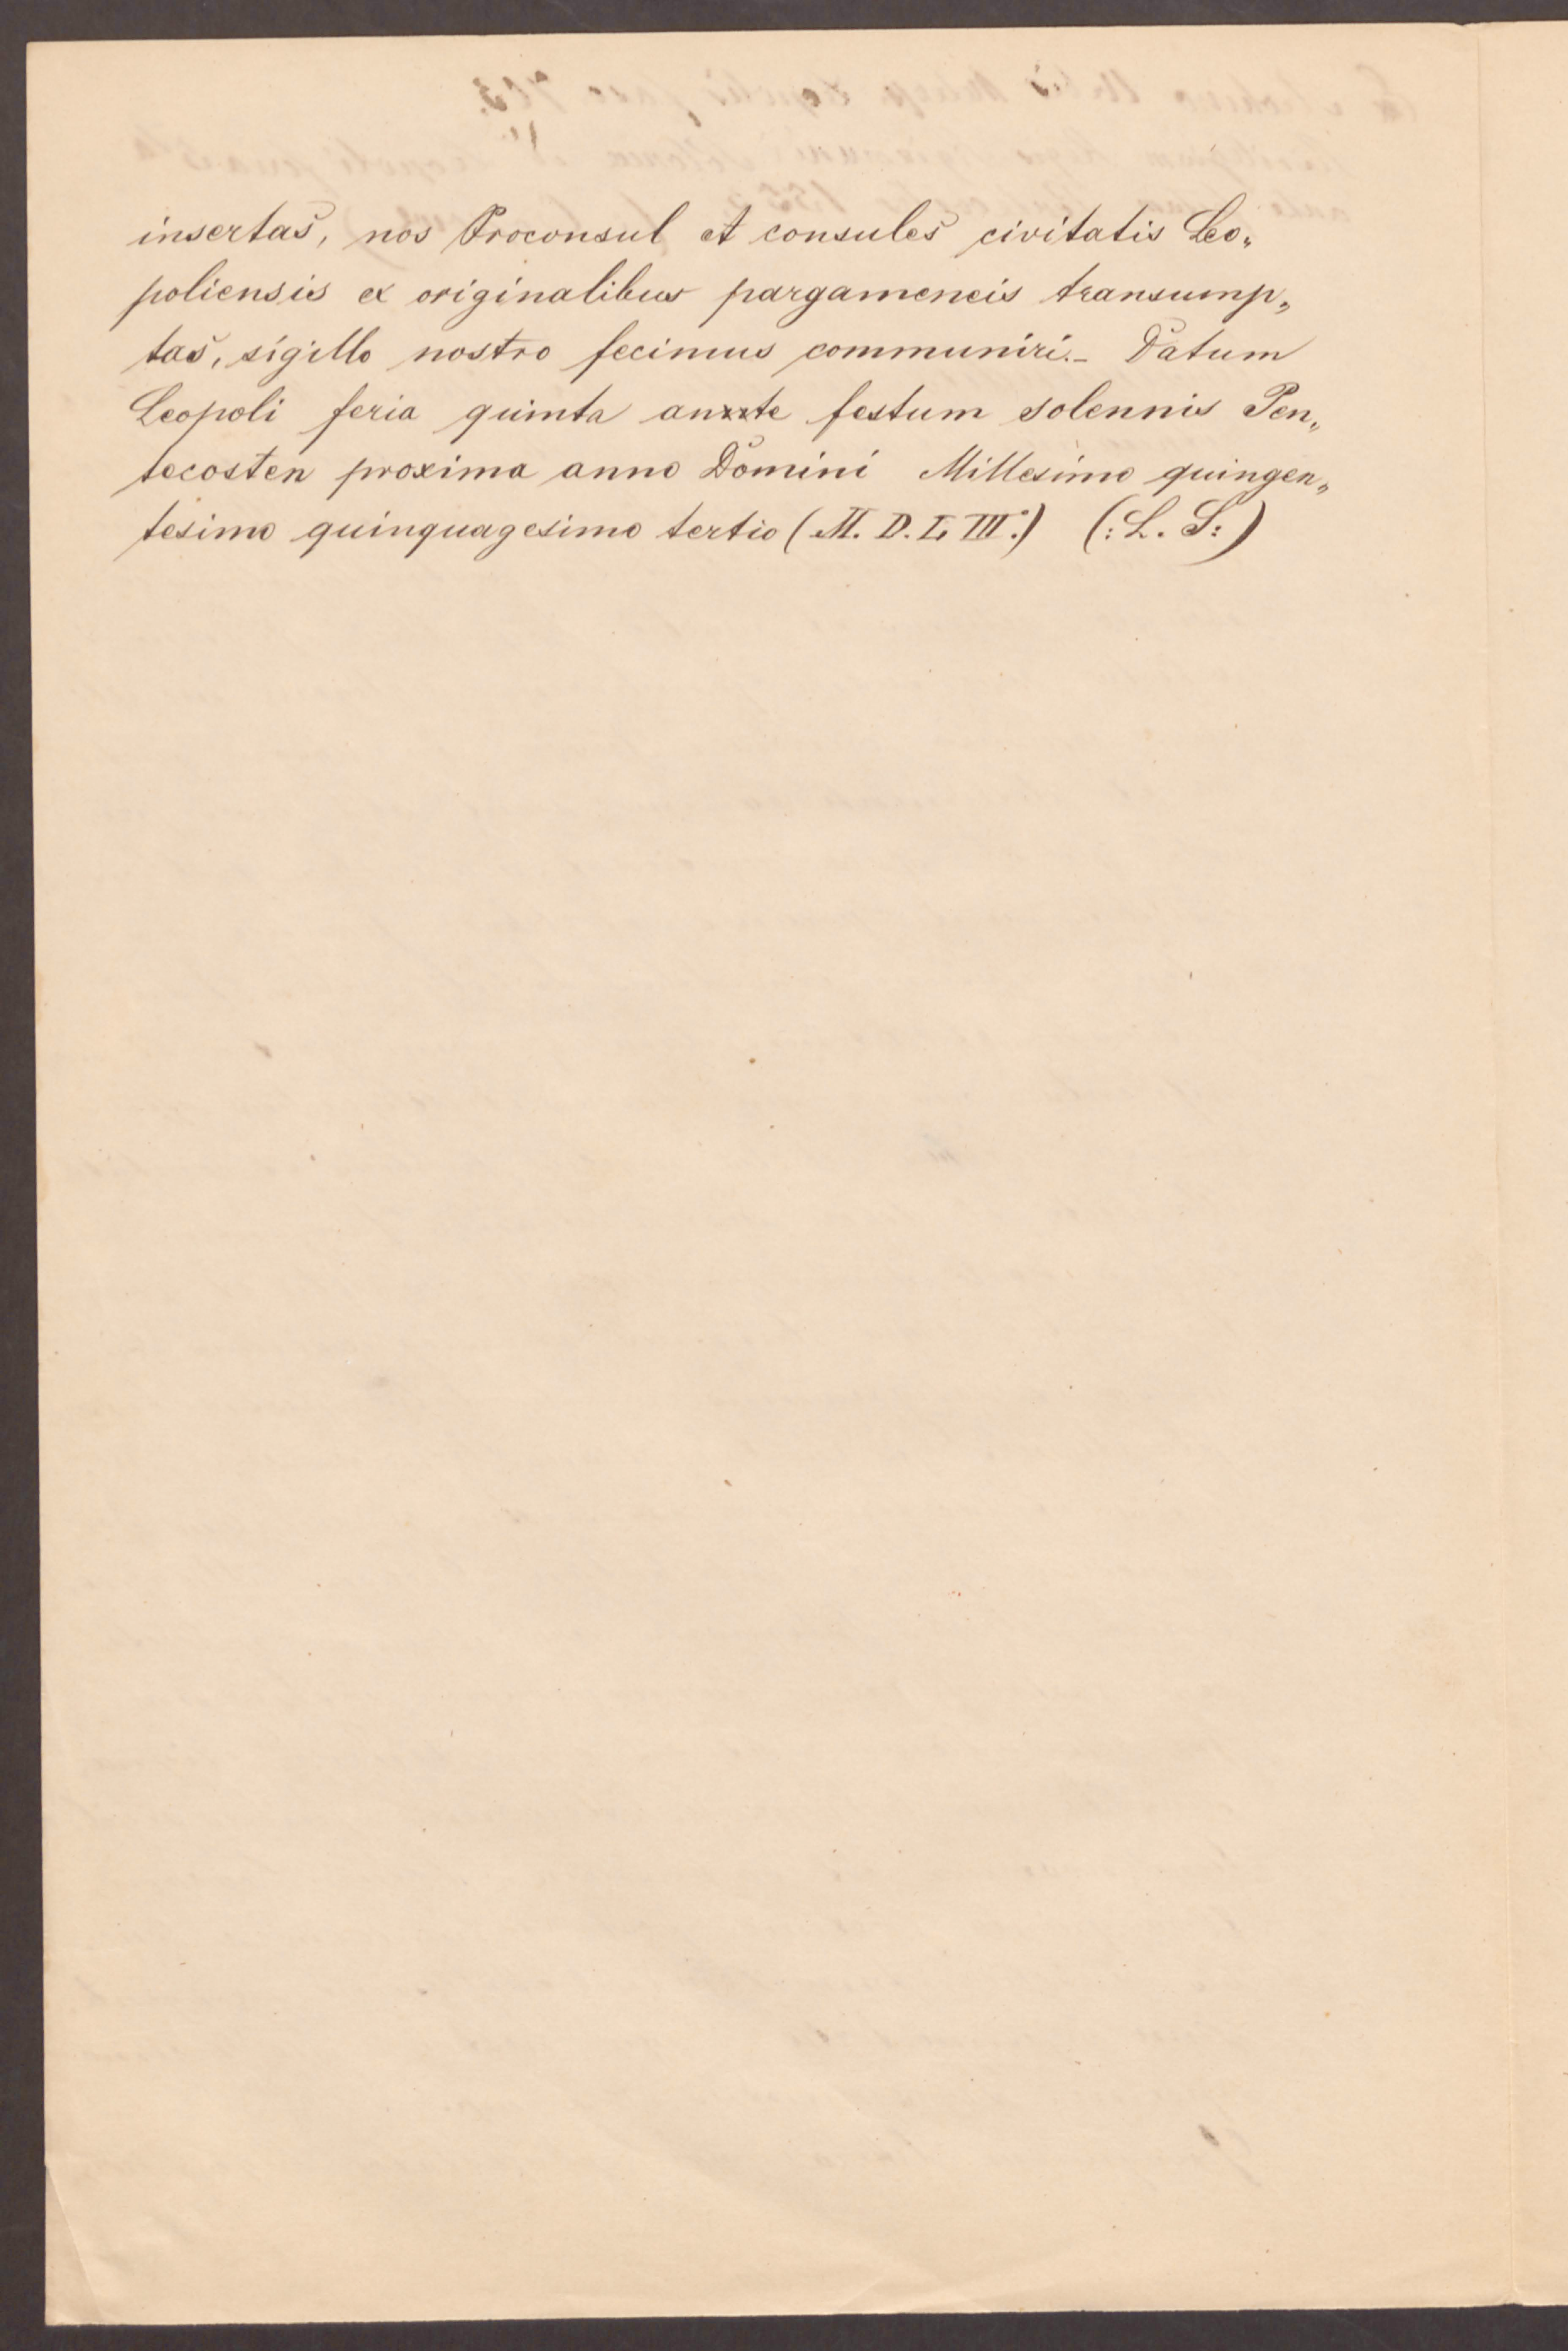 insertas, nos Proconsul et consules civitatis Leo„
poliensis ex originalibus pargameneis transump„
tas, sigillo nostro fecimus communiri.– Datum
Leopoli feria quinta anxxte festum solennis Pen„
tecosten proxima anno Domini Millesimo quingen„
tesimo quinquagesimo tertio (M. D. L III.) (: L. S :)